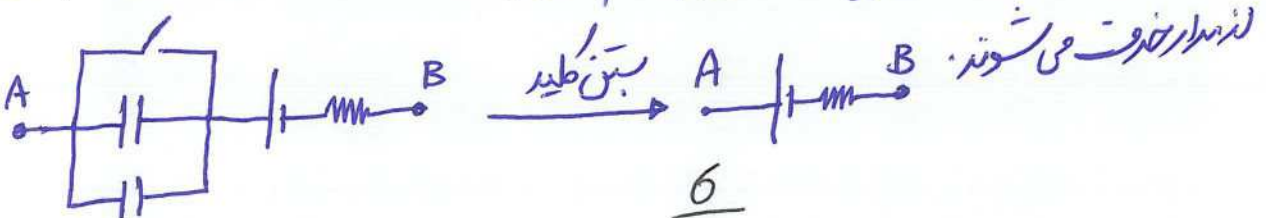 از مدار خارج می شوند.
A B بستن کلید A B
6